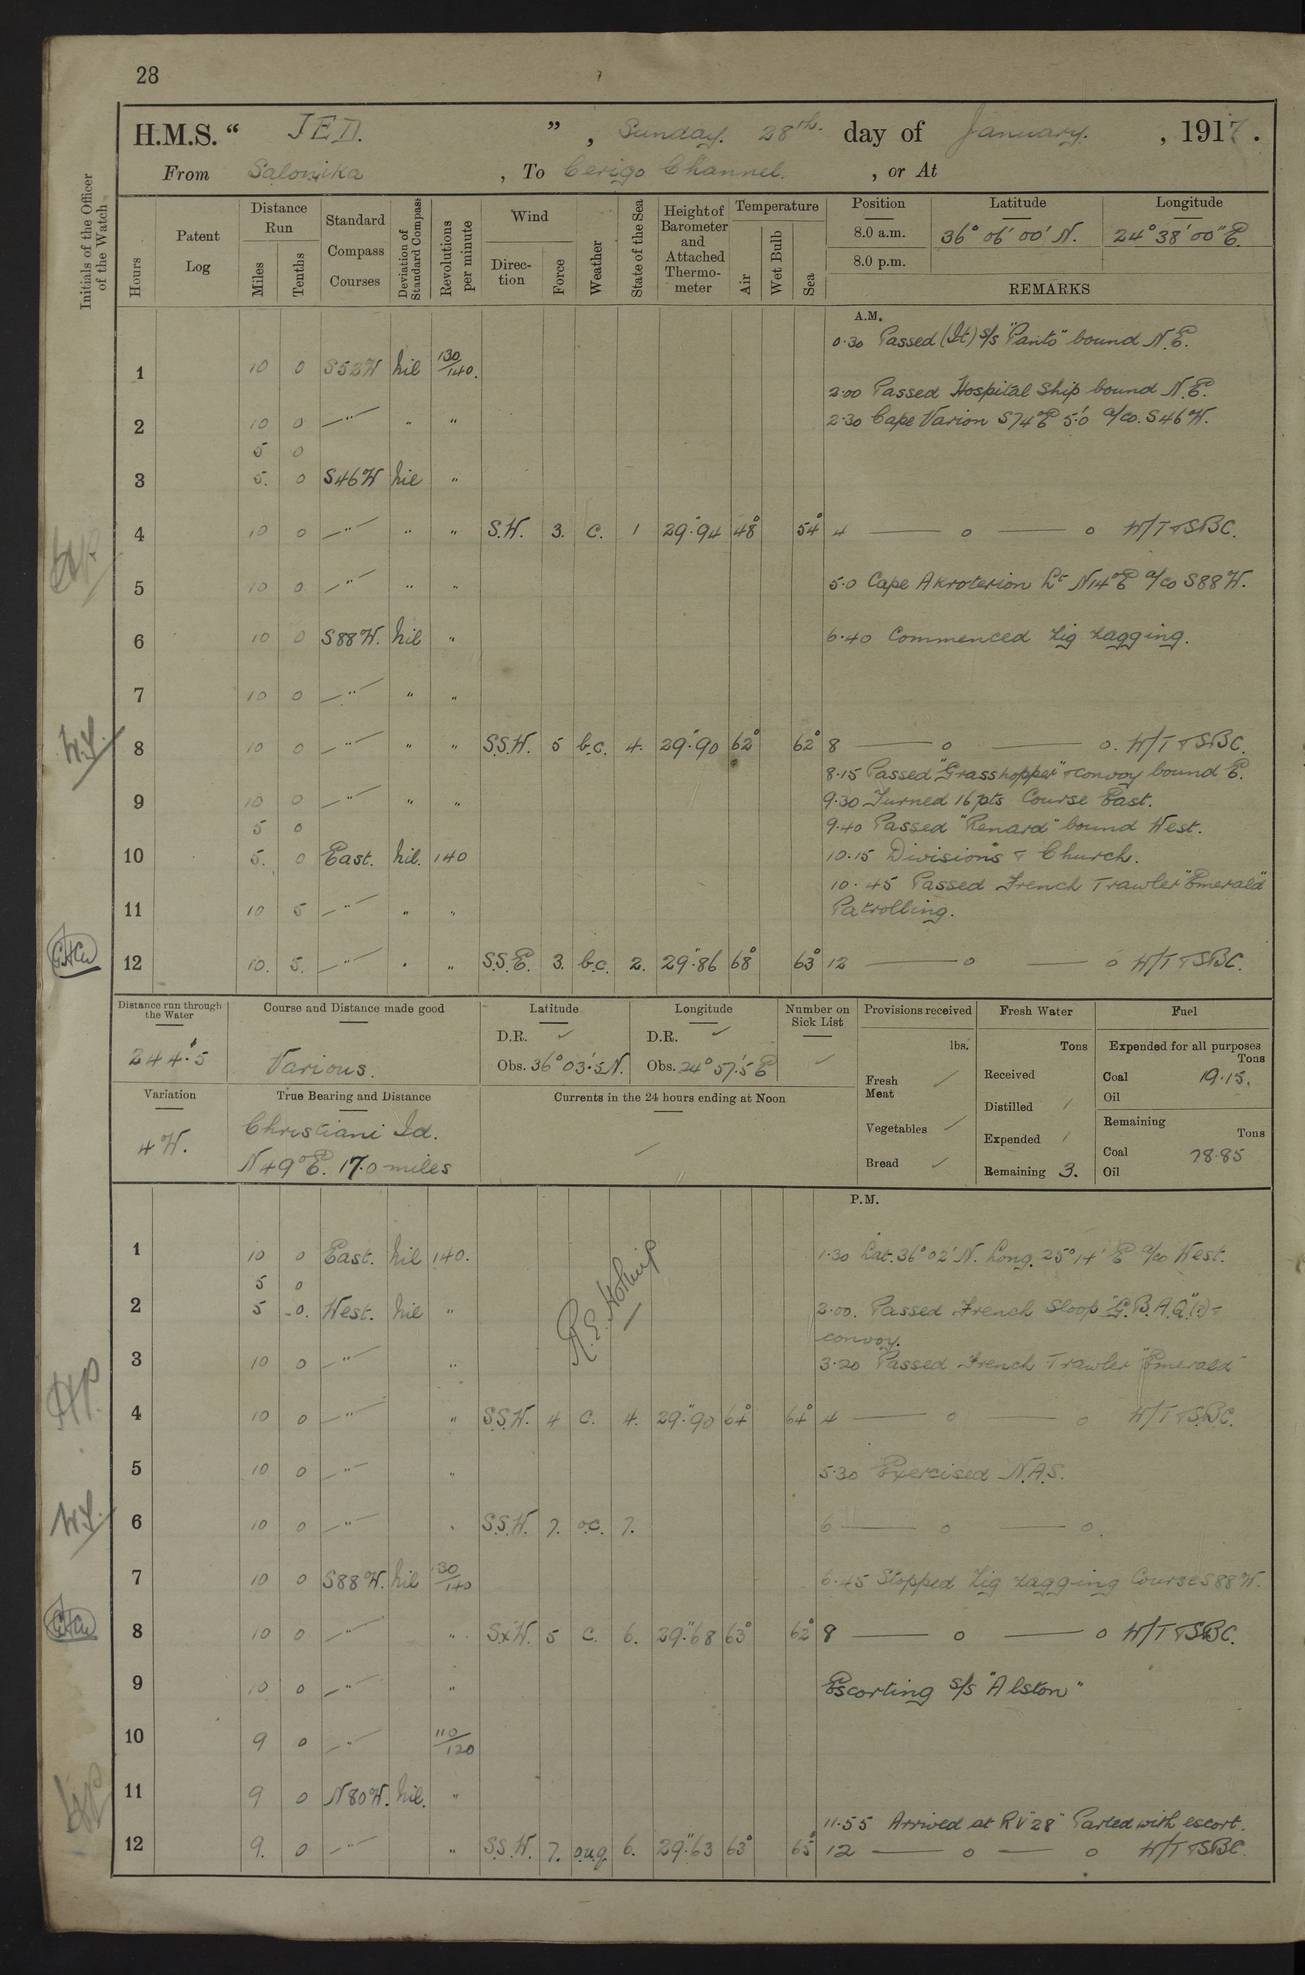 28
H.M.S. “ JED. ” , Sunday. 28th. day of January. , 1917.
From Salonika , To Cerigo Channel. , or At
Initials of the Officer of the Watch
Hours
Patent Log
Distance Run
Miles
Tenths
Standard Compass Courses
Deviation of Standard Compass
Revolutions per minute
Wind
Direction
Force
Weather
State of the Sea
Height of Barometer and Attached Thermometer
Temperature
Air
Wet Bulb
Sea
Position Latitude Longitude
8.0 a.m. 36° 06' 00' N. 24° 38' 00" E.
8.0 p.m.
REMARKS
A.M.
0.30 Passed (It) s/s "Panto" bound N.E.
1 10 0 S52W Nil 130/140.
2.00 Passed Hospital Ship bound N.E.
2 10 0 —"— " "
2.30 Cape Varion S74°E 5.'0 a/co. S46°W.
5 0
3 5. 0 S46W Nil "
4 10 0 —"— " " S.W. 3. C. 1 29".94 48° 54° 4 — o — o W/T & SBC.
5 10 0 —"— " " 5.0 Cape Akroterion Lt N14°E a/co S88°W.
6 10 0 S88W. Nil " 6.40 Commenced Zig Zagging.
7 10 0 —"— " "
W.Y.
8 10 0 —"— " " S.S.W. 5 b.c. 4. 29".90 62° 62° 8 — o — o. W/T & SBC.
8.15 Passed "Grasshopper" & convoy bound E.
9 10 0 —"— " " 9.30 Turned 16 pts Course East.
5 0 9.40 Passed "Renard" bound West.
10 5. 0 East. Nil. 140 10.15 Divisions & Church.
10.45 Passed French Trawler "Emerald"
11 10 5 —"— " " Patrolling.
12 10. 5. —"— " " S.S.E. 3. b.c. 2. 29".86 68° 63° 12 — o — o W/T & SBC.
Distance run through the Water
244.5
Course and Distance made good
Various.
Latitude
D.R. ✓
Obs. 36° 03'.5 N.
Longitude
D.R. ✓
Obs. 24° 57'.5 E
Number on Sick List
✓
Provisions received
lbs.
Fresh Meat ✓
Vegetables ✓
Bread ✓
Fresh Water
Tons
Received
Distilled /
Expended /
Remaining 3.
Fuel
Expended for all purposes
Tons
Coal 19.15.
Oil
Remaining
Tons
Coal 78.85
Oil
Variation
4W.
True Bearing and Distance
Christiani Id.
N49°E. 17.0 miles
Currents in the 24 hours ending at Noon
P.M.
1 10 0 East. Nil 140. 1.30 Lat. 36° 02' N. Long. 25° 14' E a/co West.
5 0
2 5 0. West. Nil " 2.00. Passed French Sloop "G.B.A.Q." (?) &
convoy.
3 10 0 —"— " 3.20 Passed French Trawler "Emerald"
4 10 0 —"— " S.S.W. 4 C. 4. 29".90 64° 64° 4 — o — o W/T & SBC.
5 10 0 —"— " 5.30 Exercised N.A.S.
W.Y.
6 10 0 —"— " S.S.W. 7. o.c. 7. 6 — o — o.
7 10 0 S88W. Nil 130/140 6.45 Stopped Zig Zagging Course S88°W.
8 10 0 —"— " SxW. 5 C. 6. 29".68 63° 62° 8 — o — o W/T & SBC.
9 10 0 —"— " Escorting s/s "Alston"
10 9 0 —"— 110/120
11 9 0 N80W. Nil. "
11.55 Arrived at RV "28" Parted with escort.
12 9. 0 —"— " S.S.W. 7. o.u.g. 6. 29".63 63° 65° 12 — o — o W/T & SBC